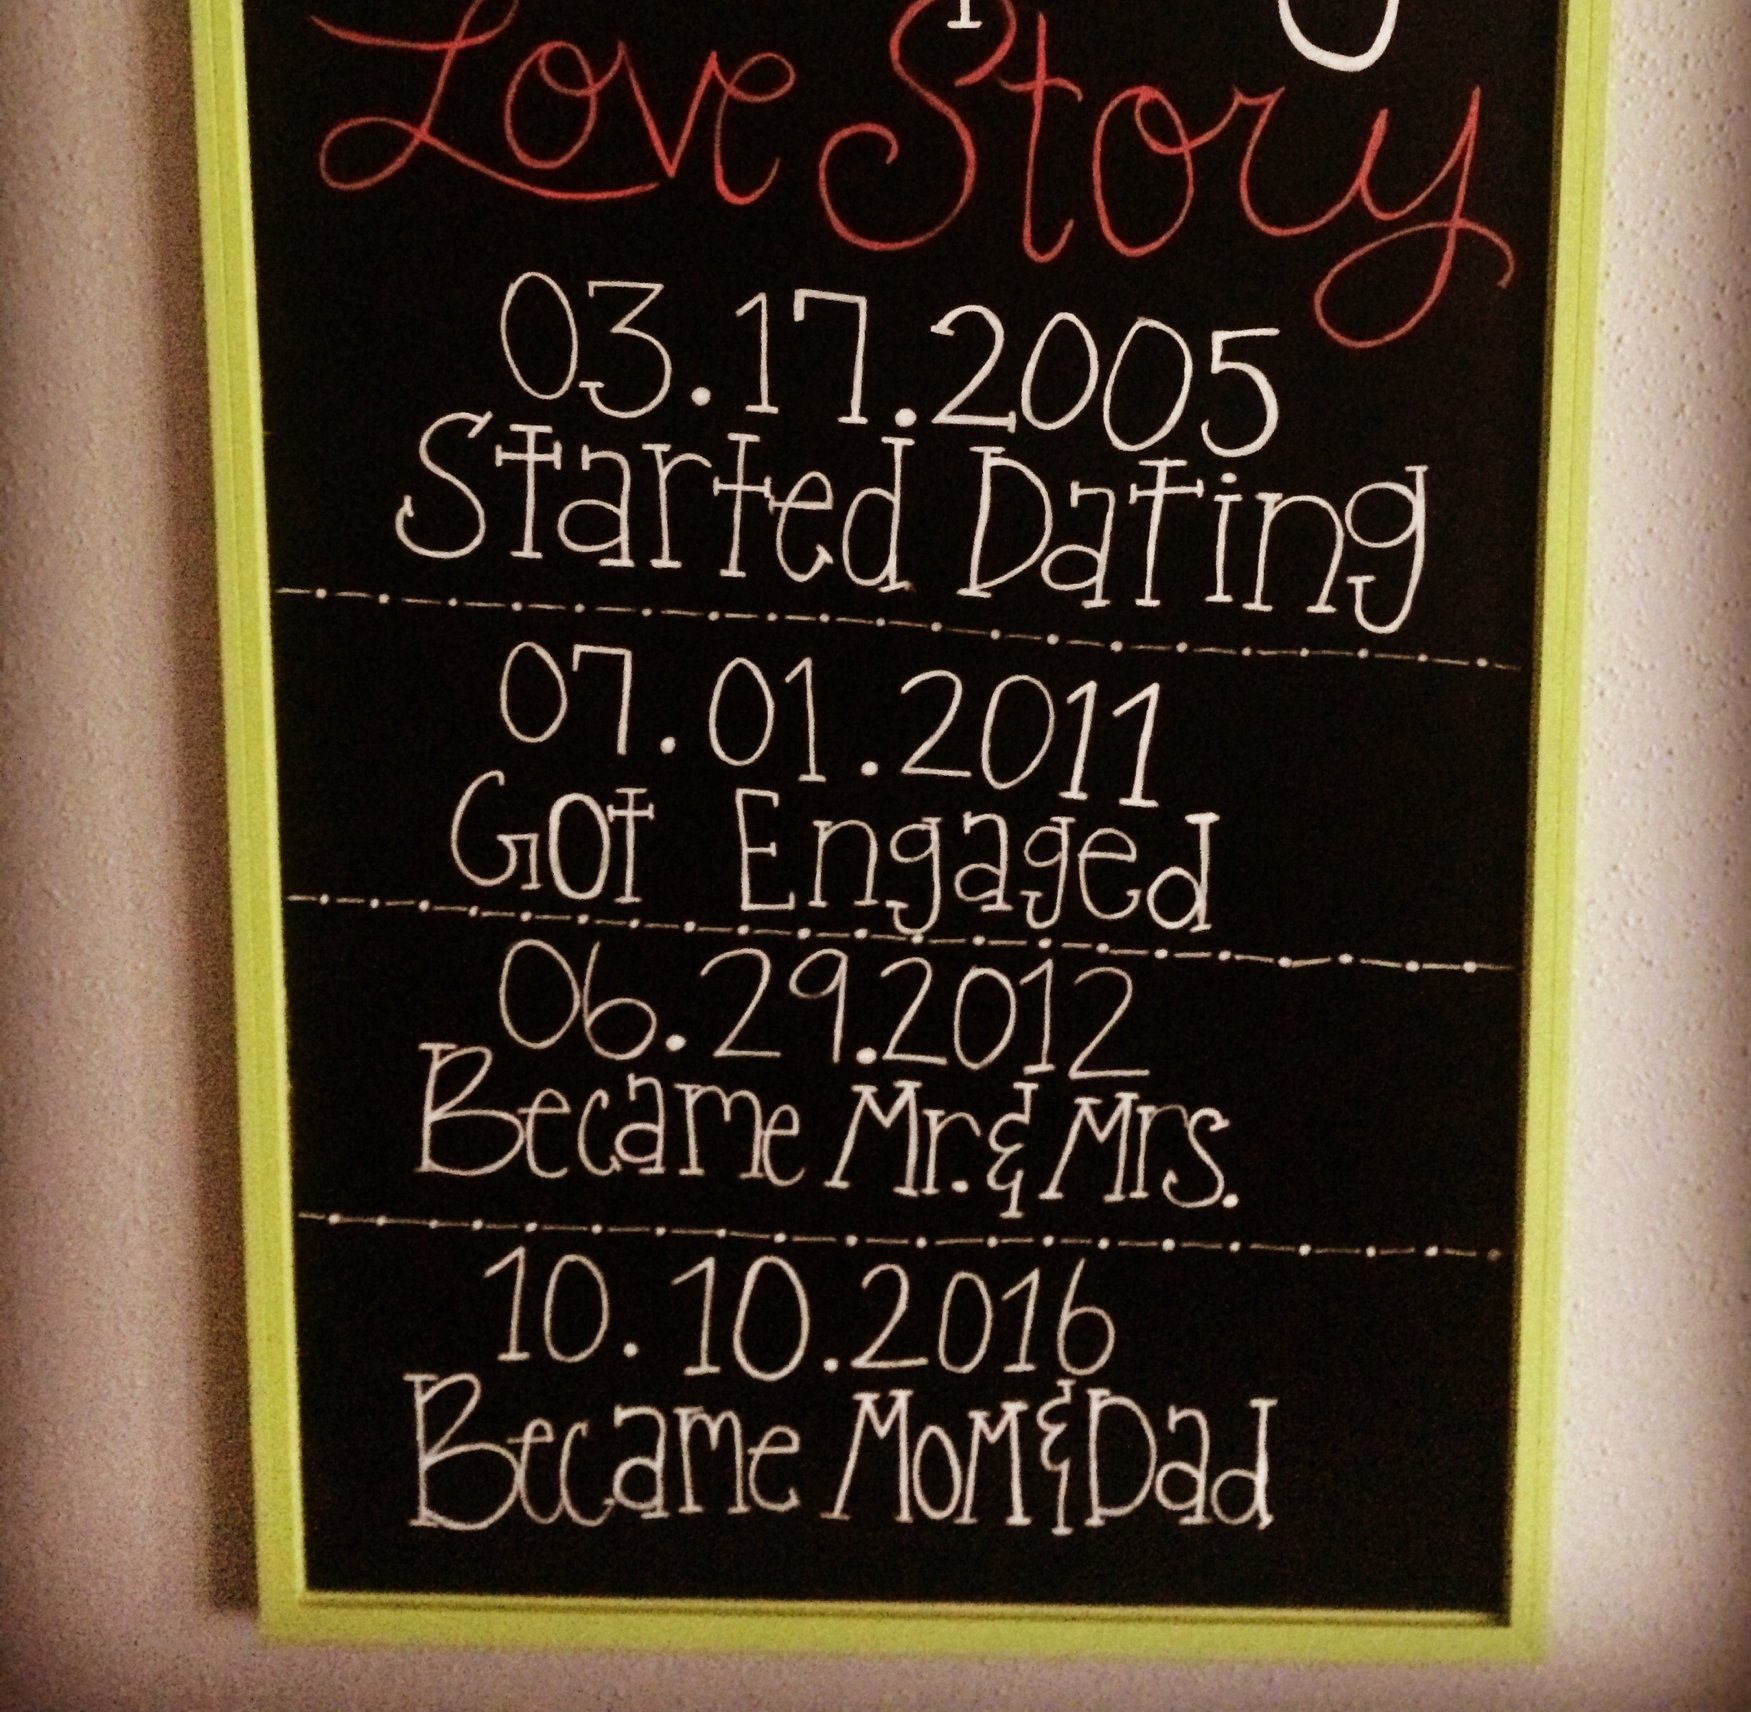 Love Story
03.17.2005
Started Dating
07.01.2011
Got Engaged
06.29.2012
Became Mr. & Mrs.
10.10.2016
Became Mom & Dad